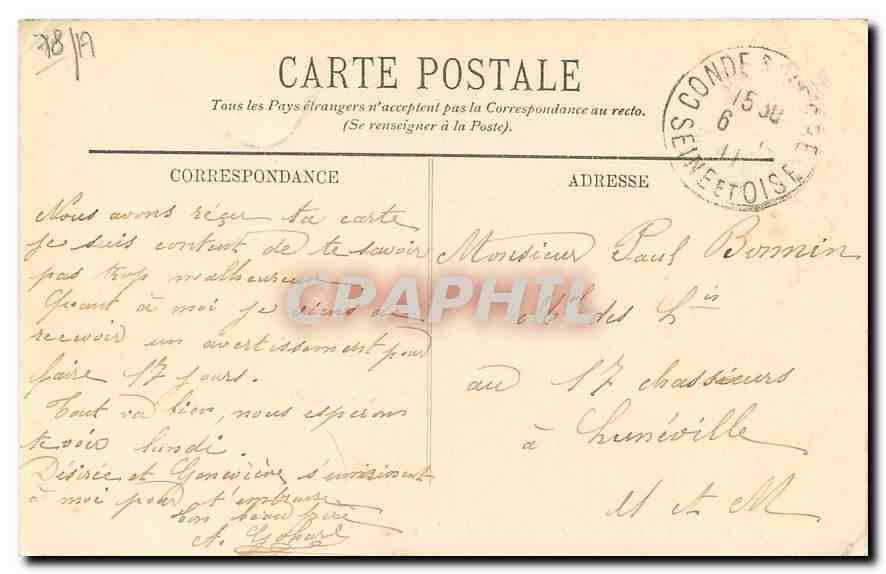 78/A
CARTE POSTALE
Tous les Pays étrangers n'acceptent pas la Correspondance au recto.
(Se renseigner à la Poste).
CONDE S
15 30
6
11
SEINE ET OISE
CORRESPONDANCE
Nous avons réçu ta carte
je suis content de te savoir
pas trop malheureux
Quant à moi je viens de
recevoir un avertissement pour
faire 17 jours.
Tout va bien, nous espérons
te voir lundi
Désirée et Geneviève s'unissent
à moi pour t'embrasser
Ton beau frère
A.
ADRESSE
Monsieur Paul Bonnin
des
au 17 chasseurs
à Lunéville
M et M
CPAPHIL